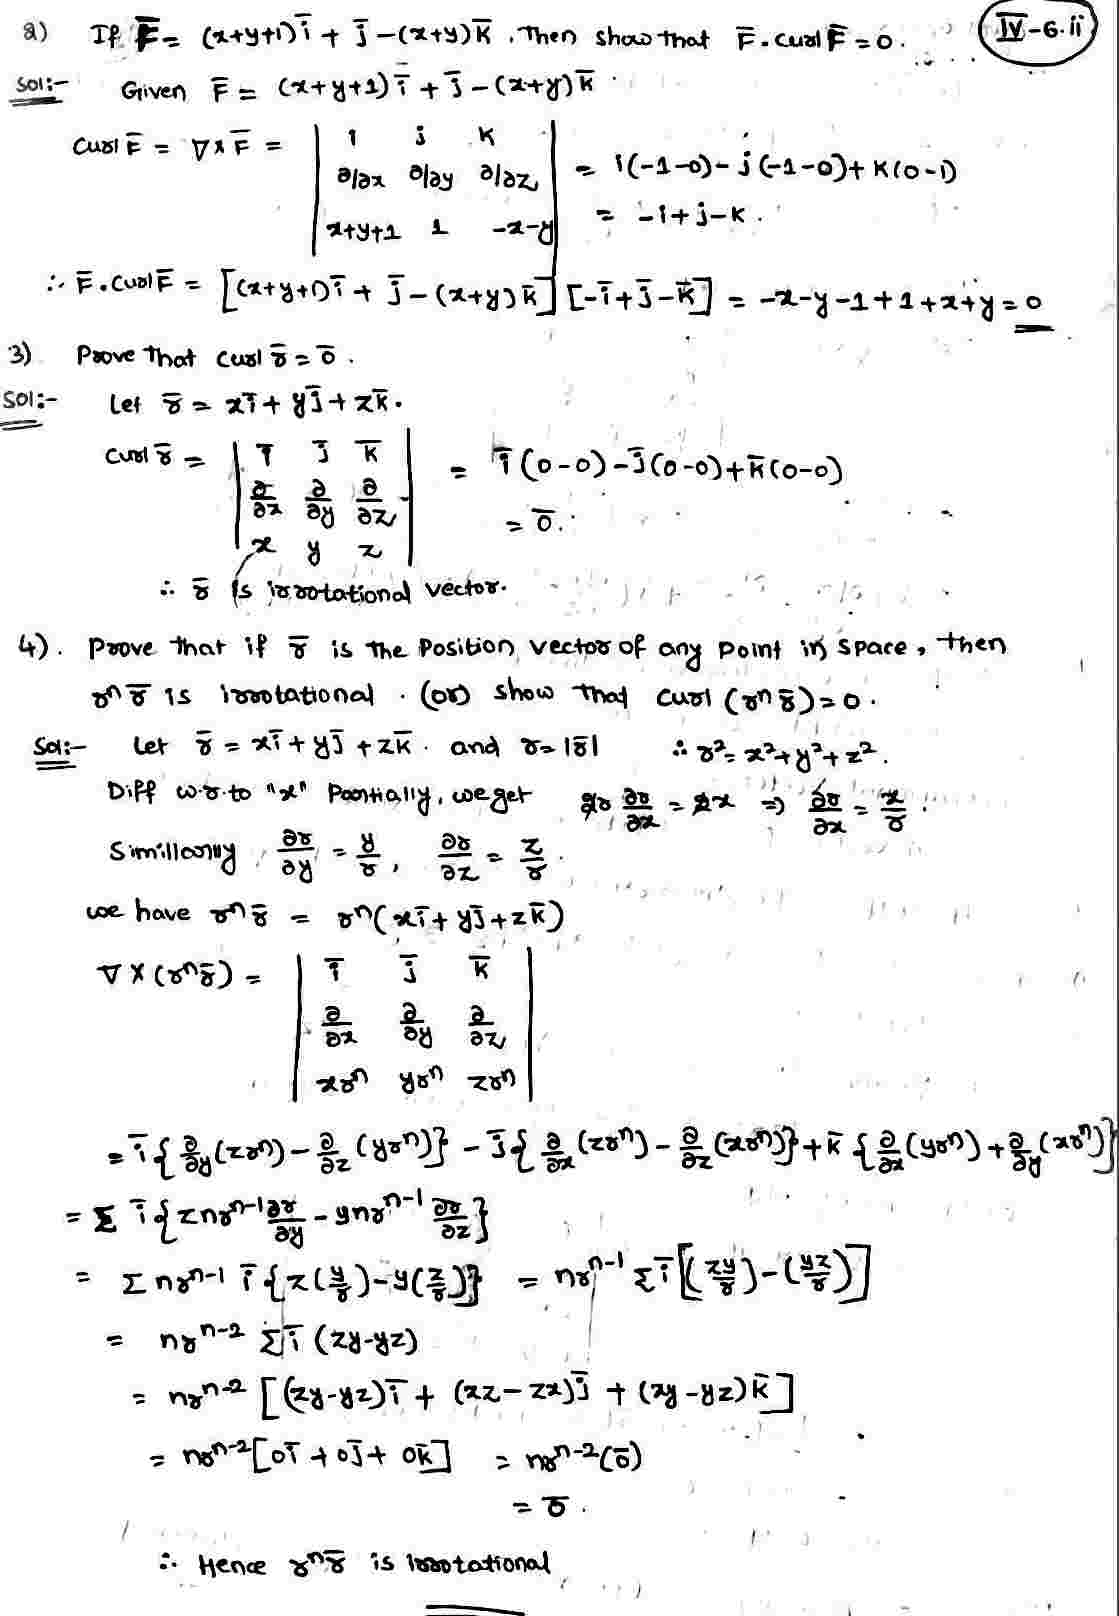 2) If F̅ = (x+y+1)i̅ + j̅ - (x+y)k̅ . Then show that F̅ . curl F̅ = 0. IV-6.ii
Sol:- Given F̅ = (x+y+1)i̅ + j̅ - (x+y)k̅
curl F̅ = ∇×F̅ = | i j k | = i(-1-0) - j(-1-0) + k(0-1)
| ∂/∂x ∂/∂y ∂/∂z |
| x+y+1 1 -x-y | = -i+j-k.
∴ F̅ . curl F̅ = [(x+y+1)i̅ + j̅ - (x+y)k̅] [-i̅+j̅-k̅] = -x-y-1+1+x+y = 0
3) Prove that curl r̅ = 0̅ .
Sol:- Let r̅ = xi̅ + yj̅ + zk̅.
curl r̅ = | i̅ j̅ k̅ | = i̅(0-0) - j̅(0-0) + k̅(0-0)
| ∂/∂x ∂/∂y ∂/∂z | = 0̅.
| x y z |
∴ r̅ is irrotational vector.
4). Prove that if r̅ is the Position vector of any point in space, then
rⁿ r̅ is irrotational . (or) show that curl (rⁿ r̅) = 0.
Sol:- Let r̅ = xi̅ + yj̅ + zk̅ . and r = |r̅| ∴ r² = x² + y² + z².
Diff w.r.to "x" Partially, we get 2r ∂r/∂x = 2x ⇒ ∂r/∂x = x/r .
Simillarly ∂r/∂y = y/r , ∂r/∂z = z/r .
we have rⁿ r̅ = rⁿ(xi̅ + yj̅ + zk̅)
∇ × (rⁿ r̅) = | i̅ j̅ k̅ |
| ∂/∂x ∂/∂y ∂/∂z |
| xrⁿ yrⁿ zrⁿ |
= i̅{∂/∂y(zrⁿ) - ∂/∂z(yrⁿ)} - j̅{∂/∂x(zrⁿ) - ∂/∂z(xrⁿ)} + k̅{∂/∂x(yrⁿ) + ∂/∂y(xrⁿ)}
= Σ i̅{znrⁿ⁻¹ ∂r/∂y - ynrⁿ⁻¹ ∂r/∂z}
= Σ nrⁿ⁻¹ i̅{z(y/r) - y(z/r)} = nrⁿ⁻¹ Σ i̅[(zy/r) - (yz/r)]
= nrⁿ⁻² Σ i̅ (zy-yz)
= nrⁿ⁻² [(zy-yz)i̅ + (xz-zx)j̅ + (xy-yz)k̅]
= nrⁿ⁻² [0i̅ + 0j̅ + 0k̅] = nrⁿ⁻²(0̅)
= 0̅ .
∴ Hence rⁿ r̅ is irrotational